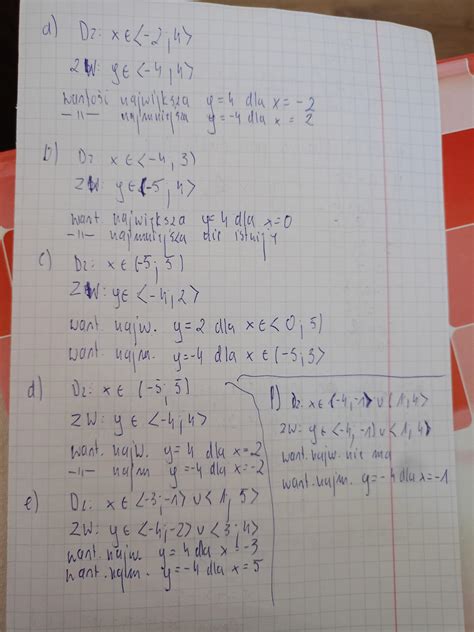 d) Dz: x∈<-2,4>
ZW: y∈<-4,4>
wartość największa y=4 dla x=-2
-11- najmniejsza y=-4 dla x=2
b) Dz: x∈<-4,3)
ZW y∈(-5,4>
wart. największa y=4 dla x=0
-11- najmniejsza nie istnieje
c) Dz: x∈(-5;5)
ZW: y∈<-4,2>
wart. najw. y=2 dla x∈<0,5)
wart. najm. y=-4 dla x∈(-5;3>
d) Dz: x∈(-5;5)
ZW: y∈<-4,4>
wart. najw. y=4 dla x=2
-11- najm y=-4 dla x=-2
e) Dz: x∈<-3;-1>∪<1,5>
ZW: y∈<-4;-2>∪<3;4>
wart. najw. y=4 dla x=-3
wart. najm. y=-4 dla x=5
f) Dz: x∈(-4,-1>∪(1,4>
ZW: y∈<-4,-1)∪<1,4)
wart. najw. nie ma
wart. najm. y=-4 dla x=-1